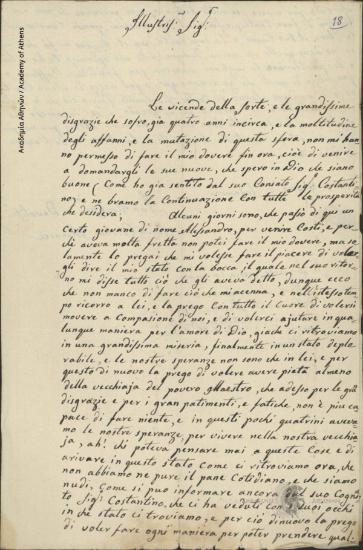 Illustris.º Sig.ʳ
18
Ακαδημία Αθηνών / Academy of Athens
Le vicende della sorte, e le grandissime
disgrazie che sofro, gia quatro anni incirca, e la moltitudine
degli affanni, e la mutazione di questa sfera, non mi han
no permeso di fare il mio dovere fin ora, cioè di venire
a domandargli le sue nuove, che spero in Dio che siano
buone (Come ho gia sentito dal suo Sig.ʳ Costanti
no, e ne bramo la Continuazione Con tutte le prosperità
che desidera; Alcuni giorni sono, che pasiò di qui un
certo giovane di nome Alessandro, per venire Costì, e per
chè aveva molta fretta non potei fare il mio dovere, ma so
lamente lo pregai che mi volesse fare il piacere di
gli dire il mio stato con la bocca, il quale nel suo ritor
no mi disse tutto ciò che gli aveva detto, dunque ecco
che non manco di fare ciò che mi acenna, e nell'istesso tem
po ricorro a lei, e la prego Con tutto il Cuore di volersi
movere a Compasione di noi, e di volerci ajutare in qua
lunque maniera per l'amore di Dio, giache ci ritroviamo
in una grandissima miseria, finalmente in un stato deplo
rabile, e le nostre speranze non sono che in lei, e per
questo di nuovo la prego di volere avere pietà almeno
della vecchiaja del povero Maestro, che adesso per le gran
disgrazie e per i gran patimenti, e fatiche, non è più ca
pace di fare niente, e in questi pochi quatrini aveva
mo le nostre speranze, per vivere nella nostra vecchia
ja, ah! chi poteva pensare mai a queste Cose e di
arivare in questo stato Come ci ritroviamo ora, che
non abbiamo ne pure il pane Cotidiano, e che siamo
nudi, Come si può informare ancora dal suo
Sig.ʳ Costantino, che ci ha veduti con i suoi occhi
in che stato ci troviamo, e per ciò di nuovo la prego
di voler fare ogni maniera per poter prendere qual